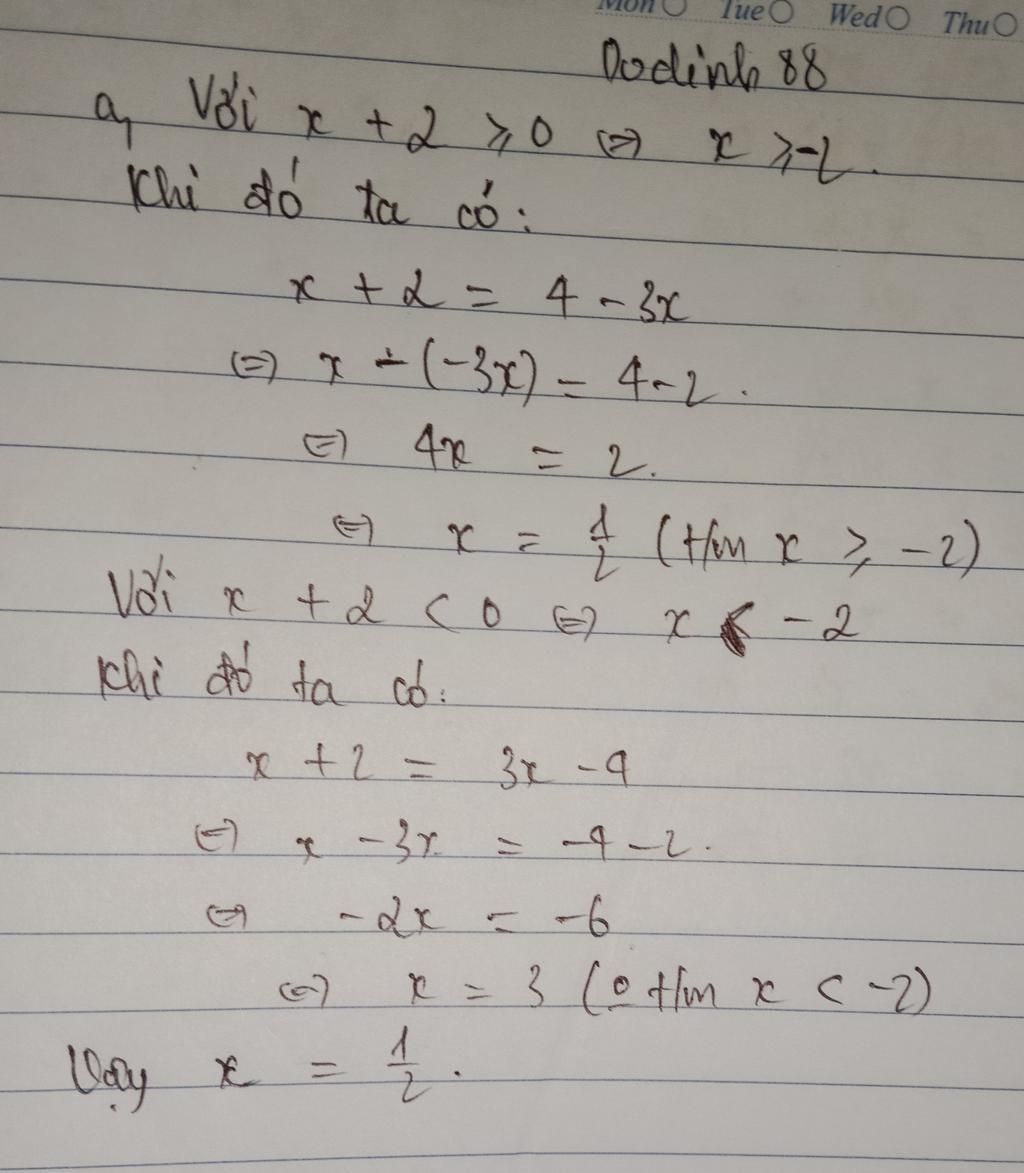 Mon Tue Wed Thu
Dodinh 88
a, Với x + 2 ⩾ 0 ⇔ x ⩾ -2.
Khi đó ta có:
x + 2 = 4 - 3x
⇔ x - (-3x) = 4 - 2.
⇔ 4x = 2.
⇔ x = 1/2 (t/m x ⩾ -2)
Với x + 2 < 0 ⇔ x < -2
Khi đó ta có:
x + 2 = 3x - 4
⇔ x - 3x = -4 - 2.
⇔ -2x = -6
⇔ x = 3 (o t/m x < -2)
Vậy x = 1/2.